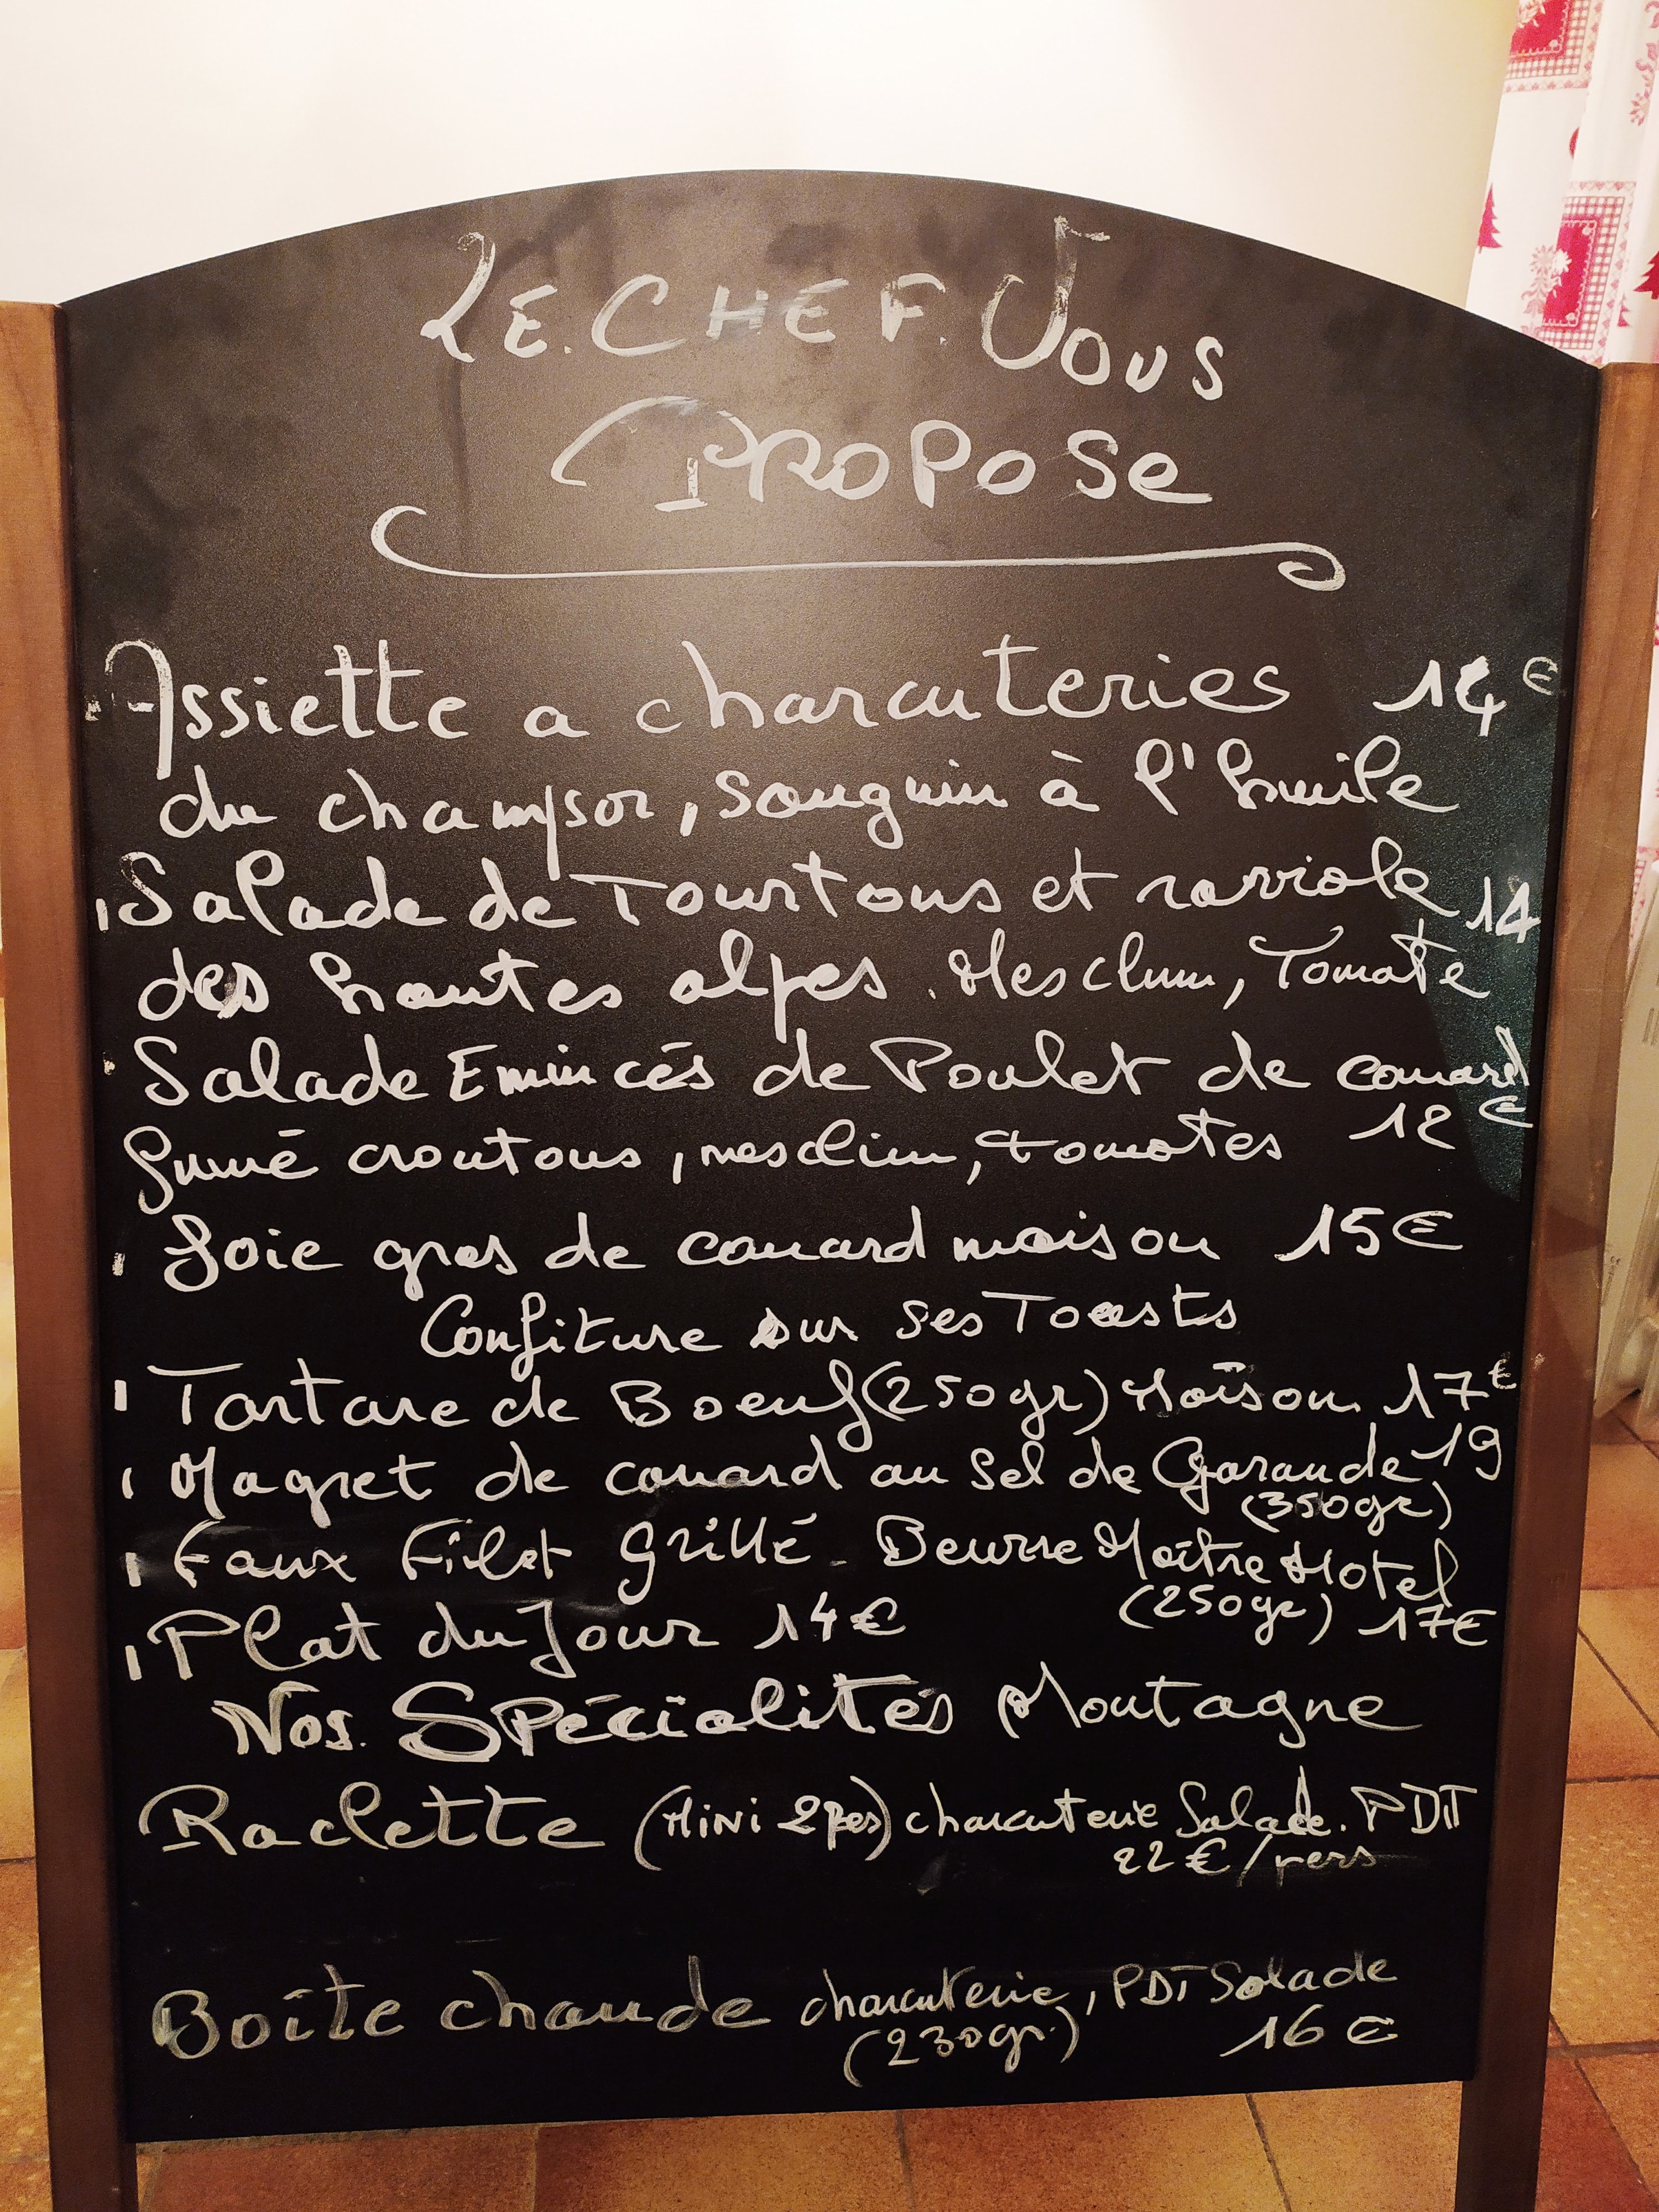 LE. CHEF. VOUS
PROPOSE
Assiette a charcuteries 14€
du champsor, Sanguin à l'huile
Salade de Tourtons et raviole 14
des hautes alpes. Mesclum, Tomate
Salade Emincés de Poulet de canard
12€
fumé croutons, mesclun, tomates
foie gras de canard maison 15€
Confiture sur ses Toasts
Tartare de Boeuf (250gr) Maison. 17€
Magret de canard au sel de Garande 19
(350gr)
Faux Filet Grillé - Beurre Maître Hotel
(250gr) 17€
Plat du Jour 14€
Nos. Spécialités Montagne
Raclette (Mini 2 Pes) charcuterie Salade. PDT
22€/pers
Boîte chaude charcuterie, PDT Salade
(230gr.) 16€